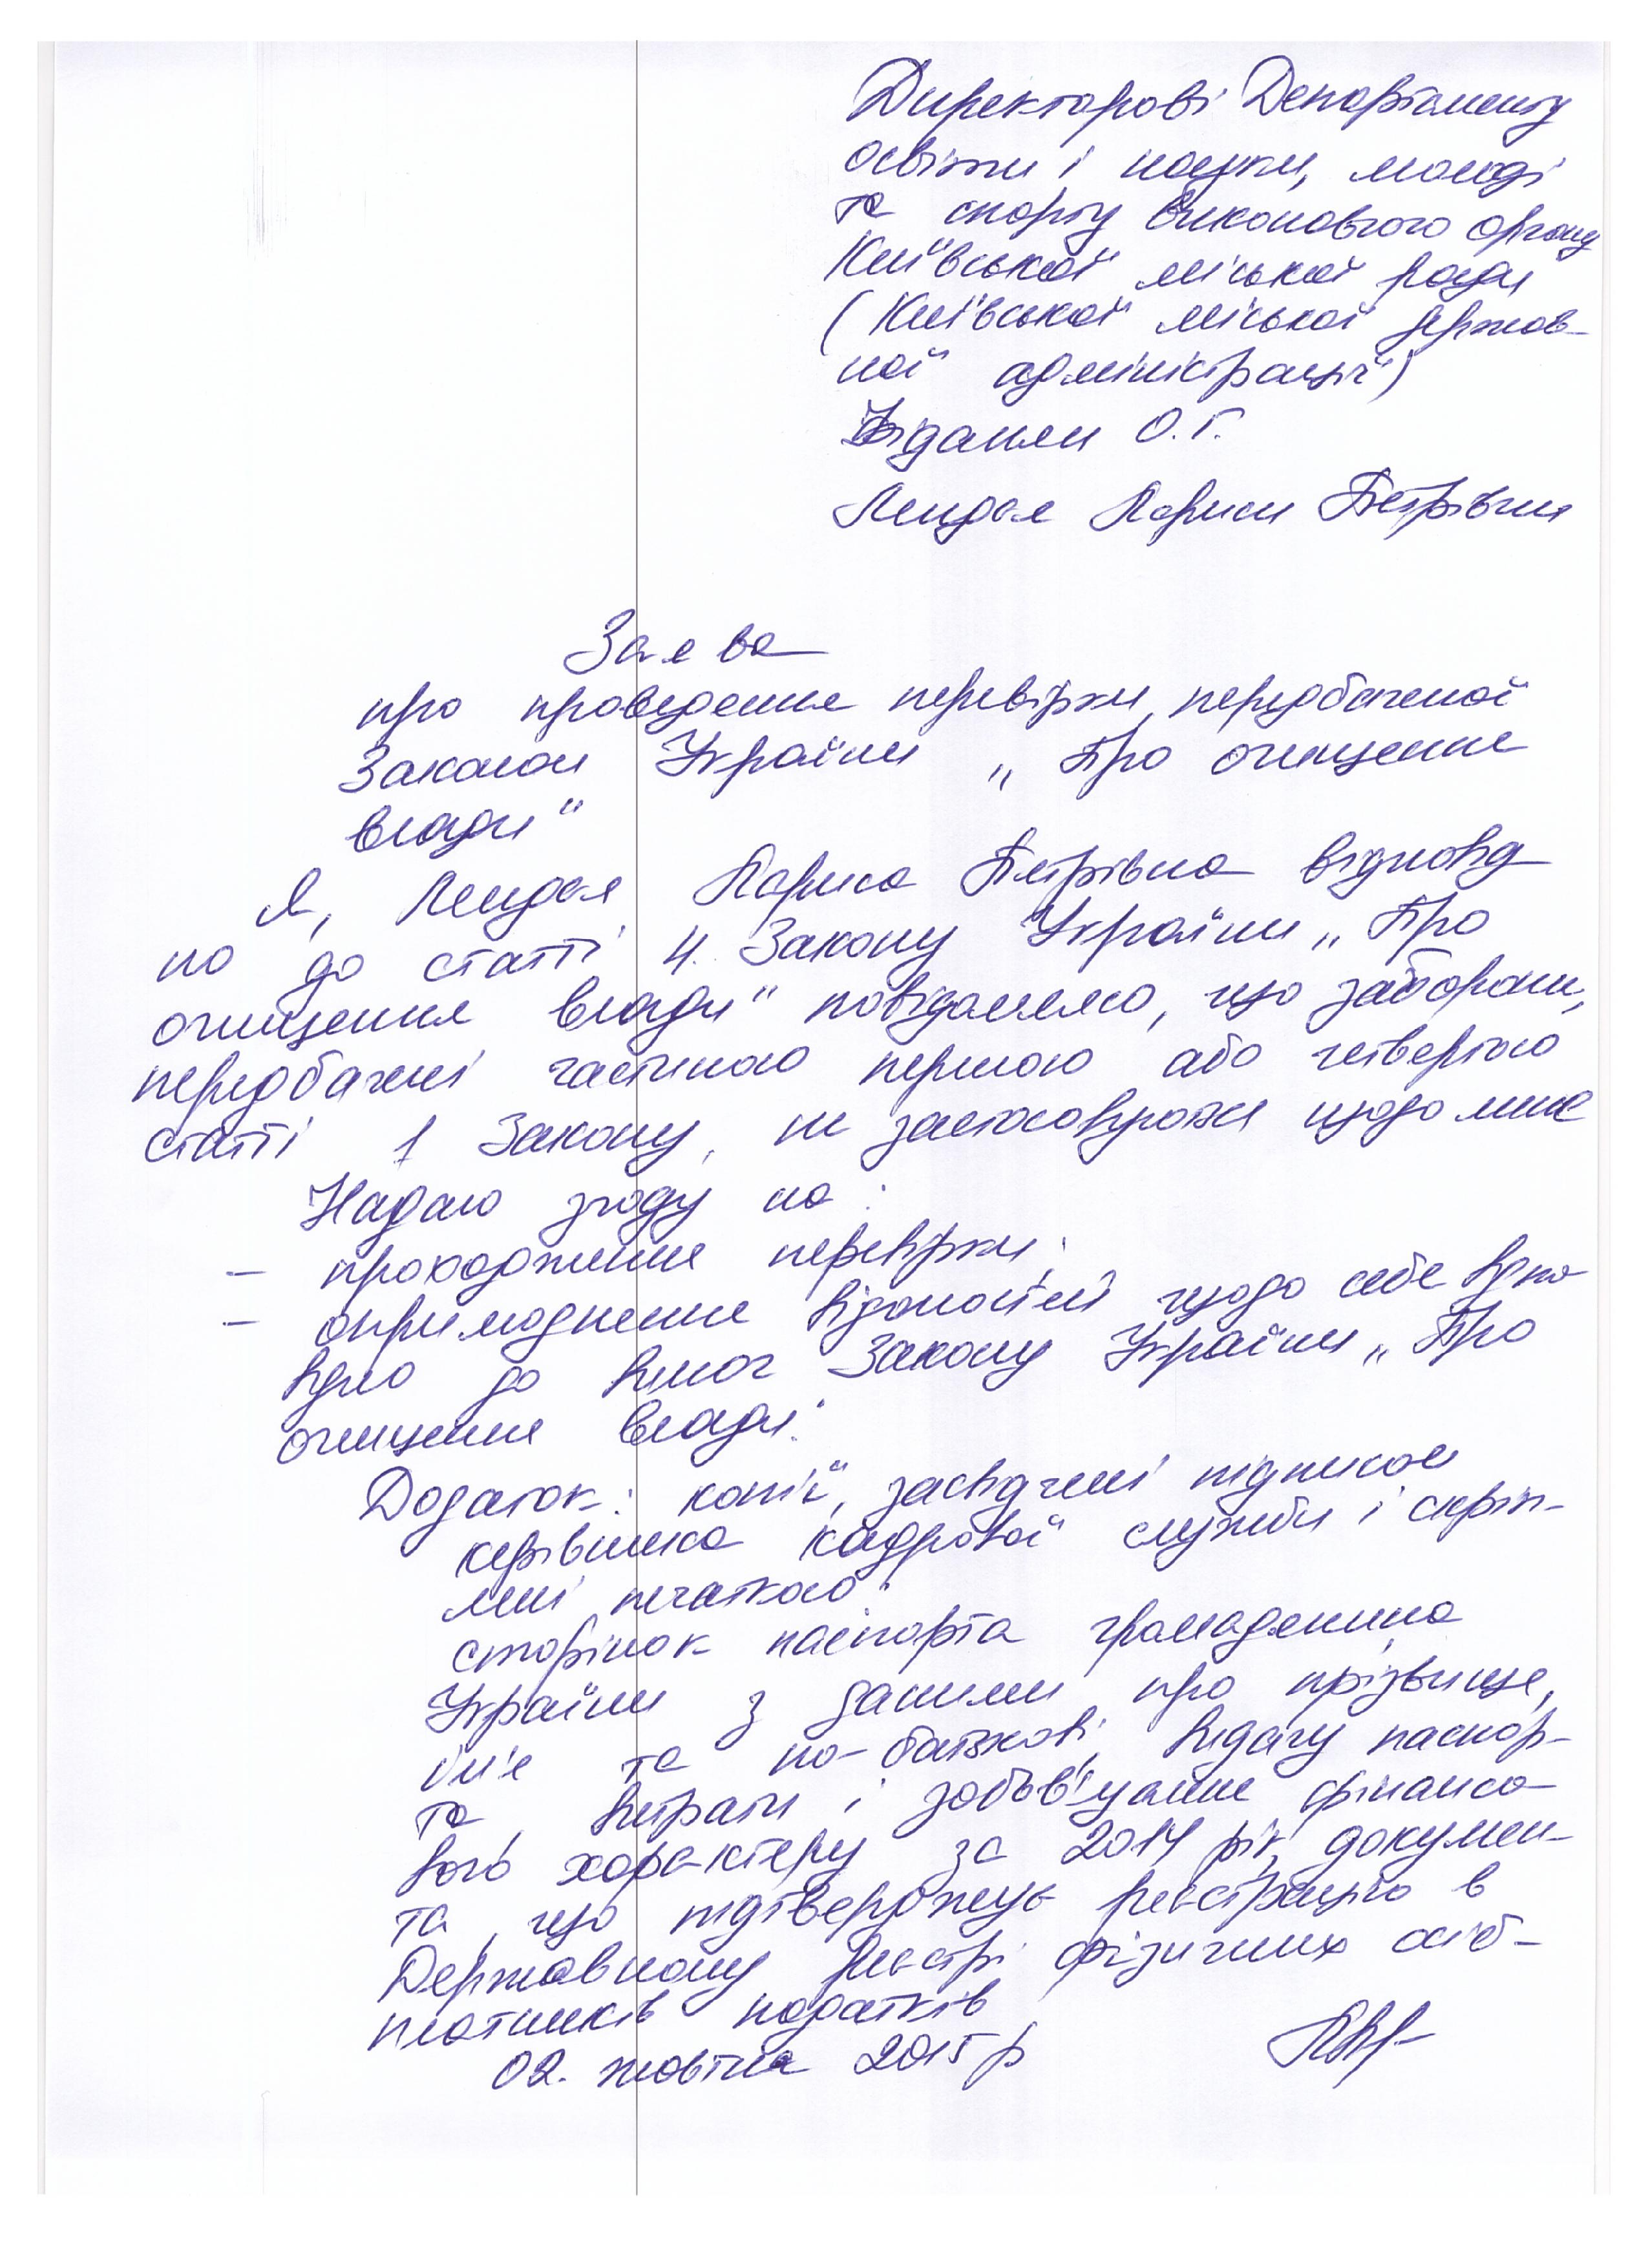 Директорові Департаменту
освіти і науки, молоді
та спорту виконавчого органу
Київської міської ради
(Київської міської держав-
ної адміністрації)
О.Г.
Лариси Петрівни
Заява
про проведення перевірки, передбаченої
Законом України „Про очищення
влади"
Я, Лариса Петрівна відповід
но до статті 4. Закону України „Про
очищення влади" повідомляю, що заборони,
передбачені частиною першою або четвертою
статті 1 Закону, не застосовуються щодо мене
Надаю згоду на:
– проходження перевірки;
– оприлюднення відомостей щодо себе відпо
відно до вимог Закону України „Про
очищення влади".
Додаток: копії, засвідчені підписом
керівника кадрової служби і скріп-
лені печаткою:
сторінок паспорта громадянина
України з даними про прізвище,
ім'я та по-батькові, видачу паспор-
та, витрати і зобов'язання фінансо
вого характеру за 2014 рік, докумен-
та, що підтверджує реєстрацію в
Державному реєстрі фізичних осіб-
платників податків
02. жовтня 2015 р